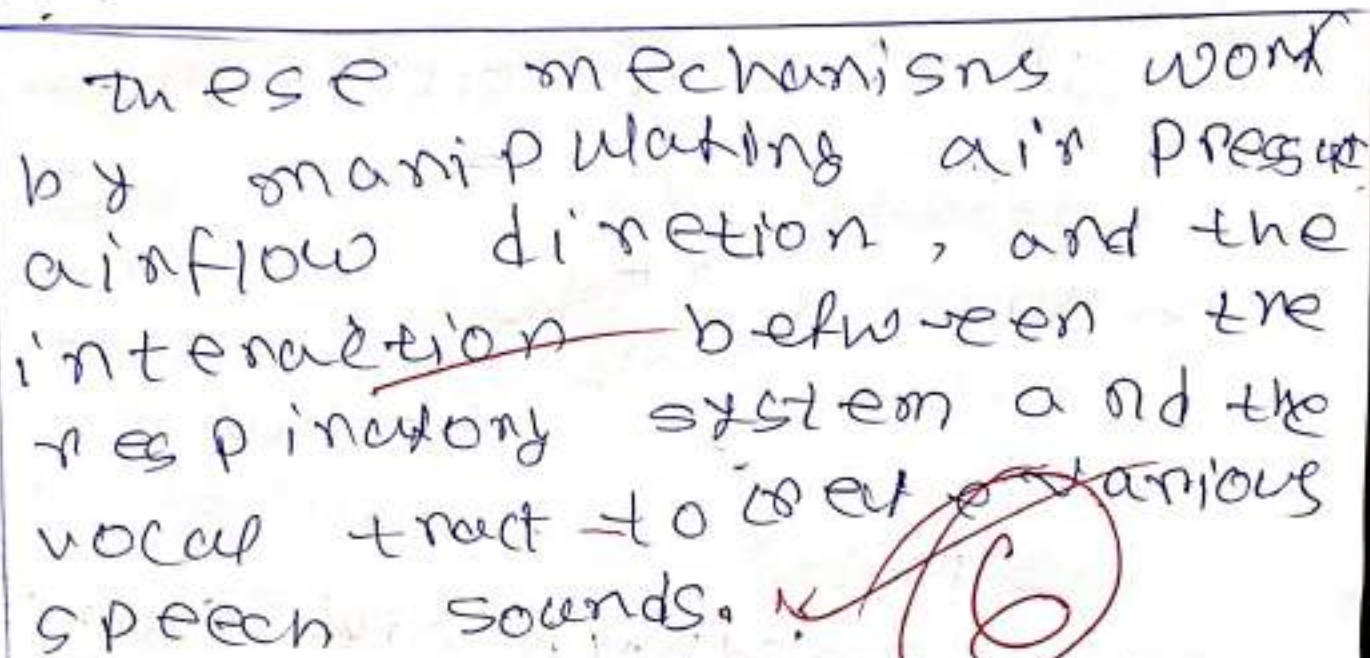 These mechanisms work
by manipulating air pressure
airflow diretion, and the
interaction between the
respiratory system and the
vocal tract to create various
speech sounds.
6